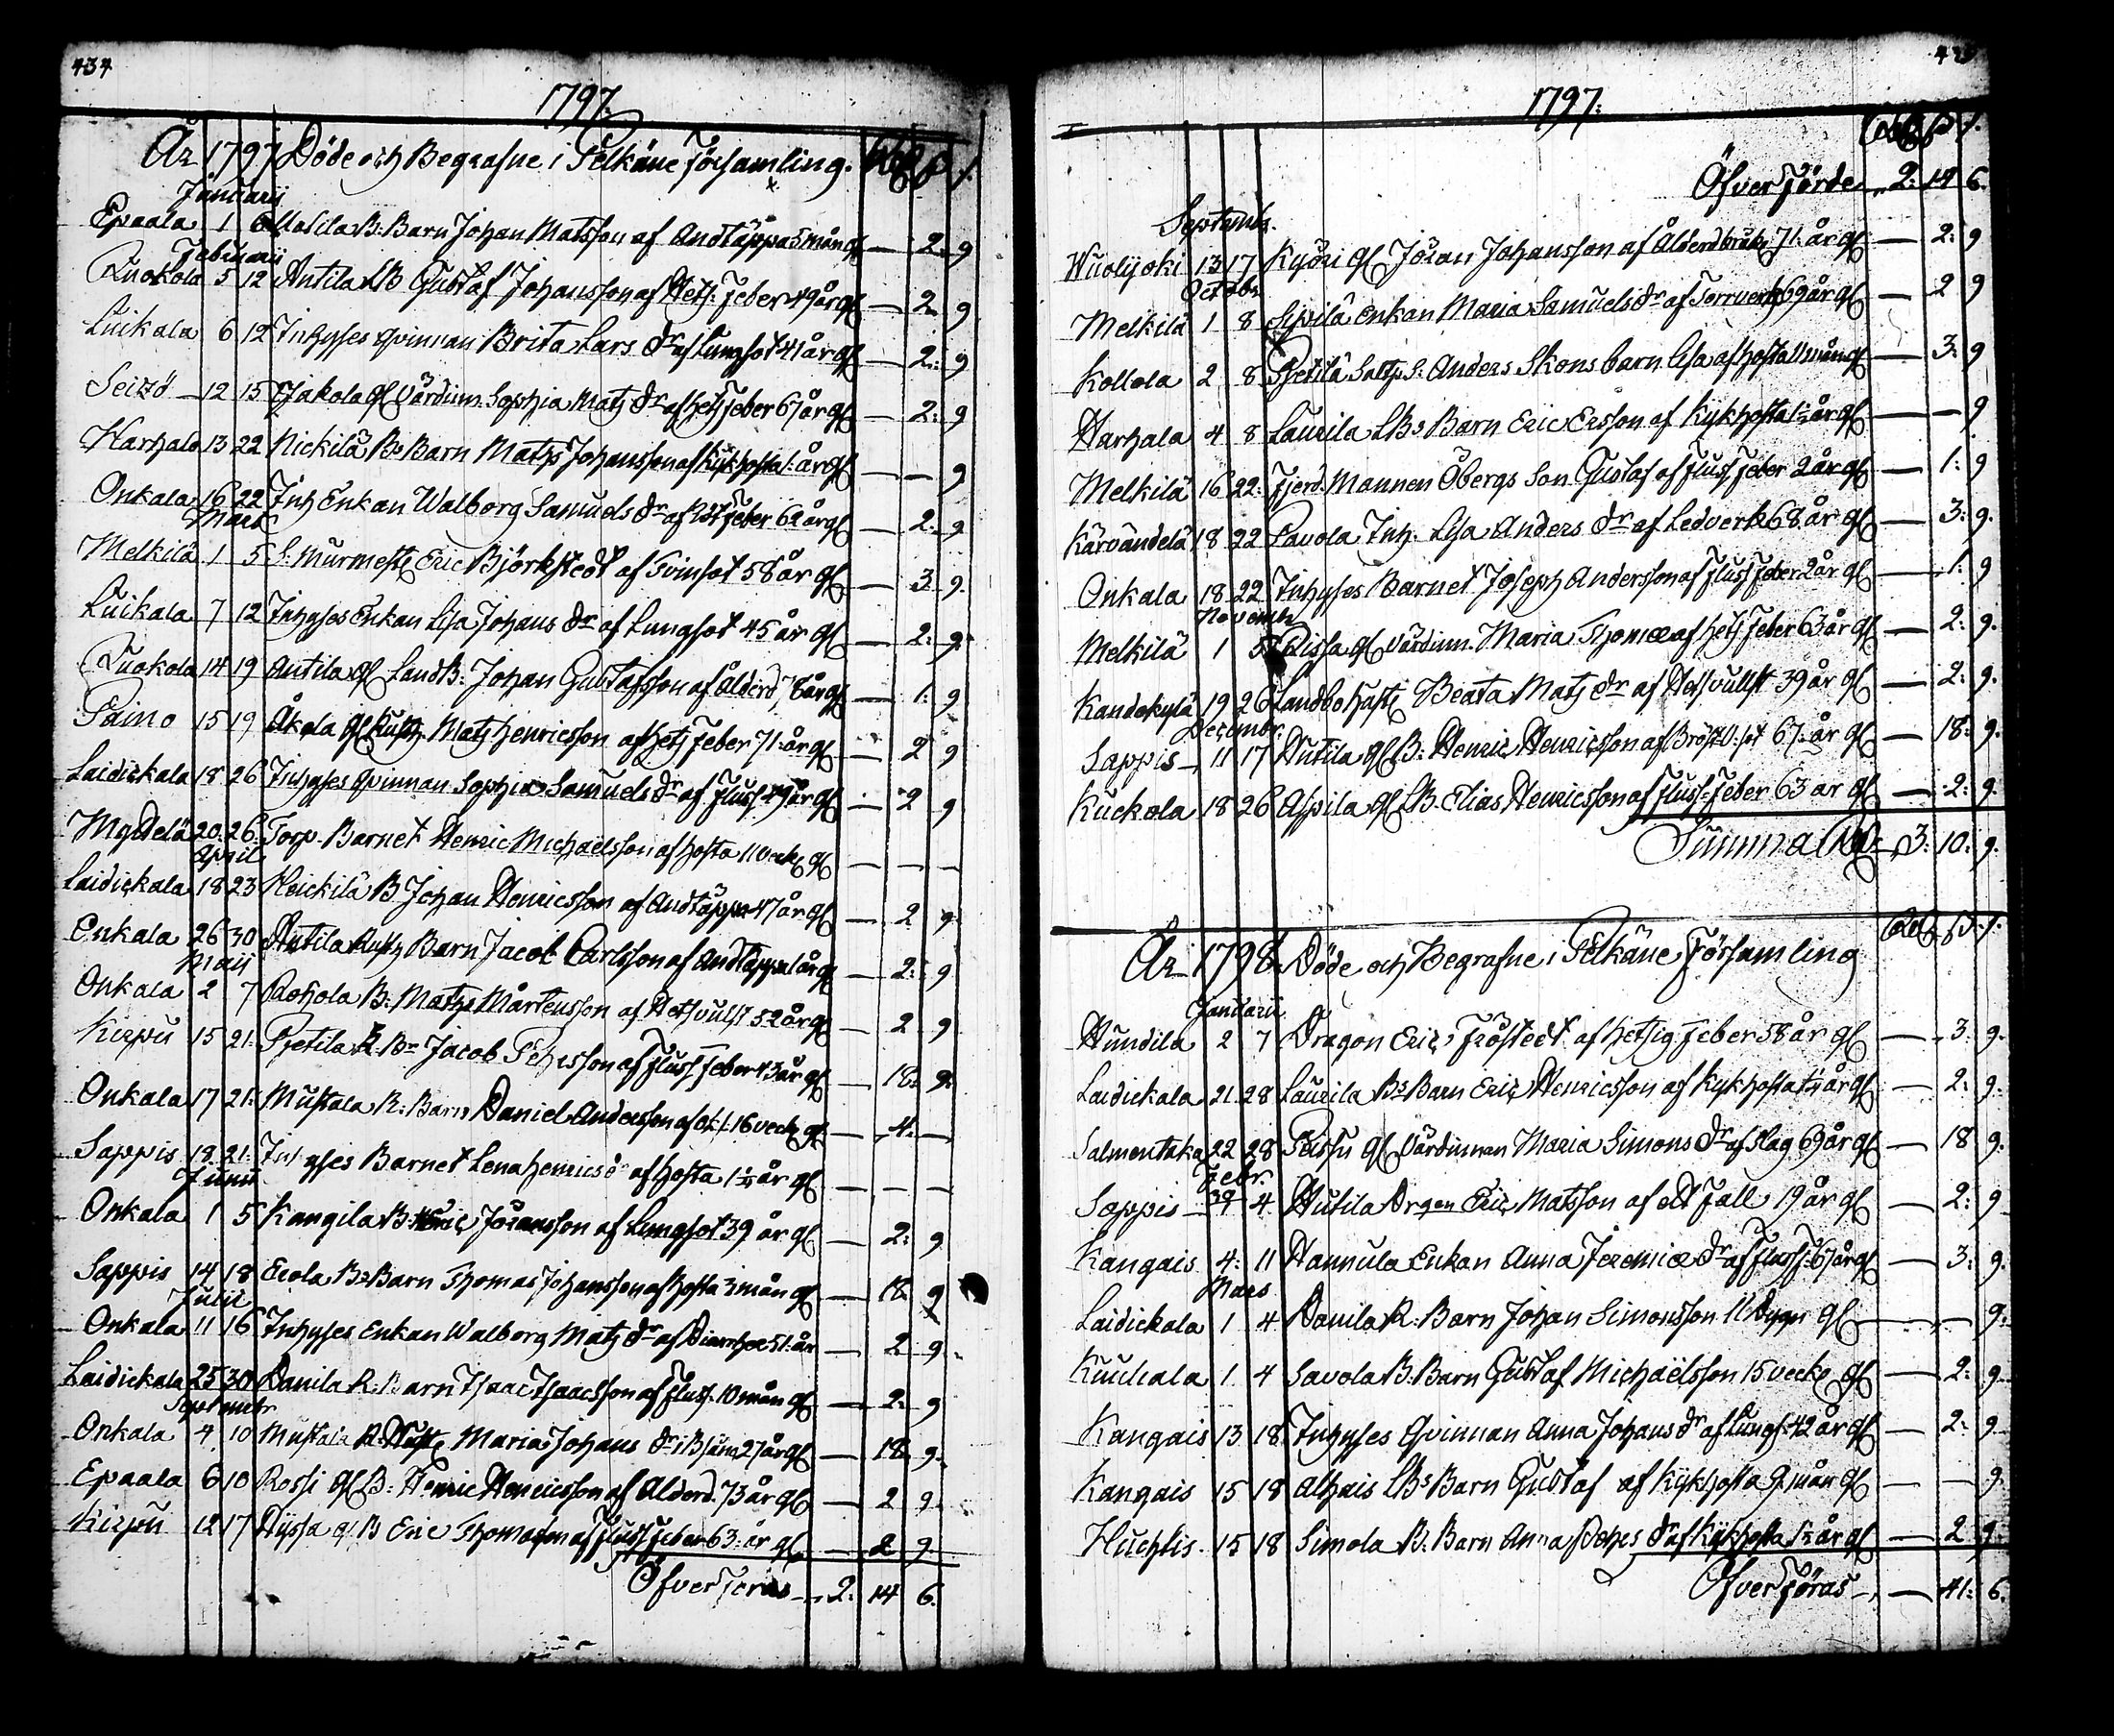 434
1797.
År 1797 Döde och Begrafne i Pelkäne Församling. Rdr ß /.
Januarii
Epaala 1 6 Matila B: Barn Johan Matsson af Andtäppa 5 mån gl — 2: 9
Februarii
Luokola 5 12 Antila LB Gustaf Johansson af Hets: Feber 49 år gl — 2 9
Luikala 6 12 Inhyses qvinnan Brita Lars dr af Lungsot 41 år gl — 2: 9
Seizö 12 15 Jakola gl Värdinn. Sophia Mats dr af hets feber 67 år gl — 2: 9
Harhala 13 22 Nickilä Bs Barn Maths Johansson af Kikhosta 1: år gl — — 9
Onkala 16 22 Inh Enkan Walborg Samuels dr af Röt Feber 62 år gl — 2. 9
Mart.
Melkilä 1 5 S. Murmest: Eric Björkstedt af Tvinsot 58 år gl — 3 9.
Luikala 7 12 Inhyses Enkan Lisa Johans dr af Lungsot 45 år gl — 2: 9.
Luokola 14 19 Antila gl LandB: Johan Gustafsson af Ålderd 78 år gl — 1: 9
Paino 15 19 Åkala gl Rusth. Mats Henricsson af hets feber 71: år gl — 2 9
Laidickala 18 26 Inhyses qvinnan Sophia Samuels dr af Fluss. 49 år gl — 2 9
Mydelä 20. 26. Torp. Barnet Henric Michaelsson af hosta 11 veck: gl — — —
April
Laidickala 18 23 Heickilä B Johan Henricsson af Andtäppa 47 år gl — 2 9.
Onkala 26 30 Antila Rusth Barn Jacob Carlsson af Andtäppa 1 år gl — 2: 9
Maii
Onkala 2 7 Rohola B: Maths Mårtensson af Hetsvulst 52 år gl — 2 9
Kirpu 15 21. Pjetila R. Br Jacob Pehrsson af Fluss Feber 43 år gl — 18: 9.
Onkala 17 21: Mustala R: Barn Daniel Andersson af 16 veck: gl — 4: —
Sappis 18. 21: Inhyses Barnet Lena Henrics dr af hosta 1½ år gl — — —
Junii
Onkala 1 5 Kangila B: Henric Jöransson af Lungsot 39 år gl — 2: 9
Sappis 14 18 Erola Bs Barn Thomas Johansson af Hosta 3 mån gl — 18: 9
Julii
Onkala 11 16 Inhyses Enkan Walborg Mats dr af Diarrhoe 51: år — 2 9.
Laidickala 25 30 Danila R: Barn Isaac Isaacsson af Fluss: 10 mån gl — 2: 9
September
Onkala 4 10 Mustala R. Hust: Maria Johans dr i Bsäng 27 år gl — 18: 9.
Epaala 6 10 Rossi gl B: Henric Henricsson af Alderd. 73 år gl — 2 9.
Kirpu 12 17 Hyssa gl B Eric Thomasson af Fluss Feber 63: år gl — 2 9
Öfverföras — 2: 14 6.
1797:
Rdr ß /.
Öfverförde — 2: 14 6.
Septemb:
Wuolijoki 13 17 Kyöri gl Jöran Johansson af Ålderdbräck: 71: år gl — 2: 9
Octobr
Melkilä 1 8 Sipilä Enkan Maria Samuels dr af Torrverk 69 år gl — 2 9
Kollola 2 8 Pjetilä Anders Skons barn Lisa af hosta mån gl — 3: 9
Harhala 4 8 Laurila LBs Barn Eric Ersson af Kykhosta 1½ år gl — — 9
Melkilä 16 22: Fjerd. Mannen Öbergs Son Gustaf af Fluss Feber 2 år gl — 1: 9
Kärvändelä 18 22 Lavola Inh. Lisa Anders dr af Ledverk 68 år gl — 3: 9.
Onkala 18 22 Inhyses Barnet Joseph Andersson af Fluss Feber 2 år gl — 1: 9
Novembr
Melkilä 1 5 Rissa gl Värdinn. Maria Thomæ af Hets Feber 63 år gl — 2: 9.
Kandokylä 19 26 Landbohust: Beata Mats dr af Hetsvullst 39 år gl — 2: 9.
Decembr.
Sappis 11 17 Hutila gl B: Henric Henricsson af Bröst V: sot 67: år gl — 18: 9.
Kuckola 18 26 Aspila gl B. Elias Henricsson af Fluss-Feber 63 år gl — 2: 9.
Summa Rdr 3: 10: 9.
Rdr ß: /.
År 1798. Döde och Begrafne i Pelkäne Församling
Januarii
Hundila 2 7 Dragon Eric Fröstedt af hetsig Feber 58 år gl — 3: 9.
Laidickala 21. 28 Laurila Bs Barn Eric Henricsson af Kykhosta år gl — 2: 9.
Salmentaka 22 28 Perssu gl Värdinnan Maria Simons dr af Slag 69 år gl — 18 9.
Febr.
Sappis 4 Hutila Drgen Eric Matsson af ett Fall 19 år gl — 2: 9
Kangais 4: 11 Hannula Enkan Anna Jeremiæ dr af Fluss F: 67 år gl — 3: 9.
Mars
Laidickala 1 4 Danila R: Barn Johan Simonsson 11 Dygn gl — — 9.
Kuuliala 1 4 Savola B: Barn Gustaf Michaelsson 15 veck: gl — 2: 9.
Kangais 13 18 Inhyses Qvinnan Anna Johans dr af Lungs: 42 år gl — 2: 9
Kangais 15 18 Alhais LBs Barn Gustaf af Kykhosta 9 mån gl — — 9.
Huchtis 15 18 Simola B: Barn Anna dr af Kykhosta 1½ år gl — 2 9.
Öfverföras — 41: 6.